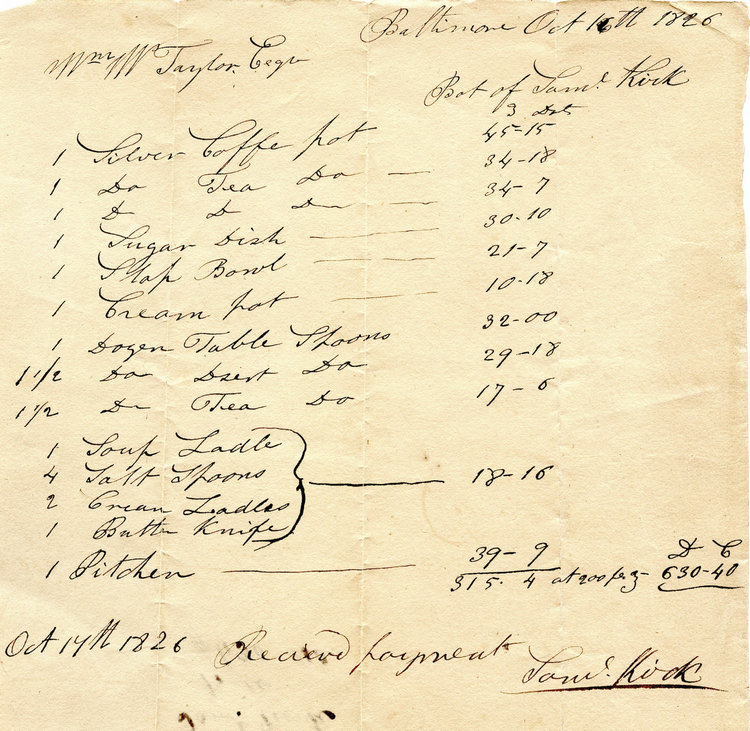 Baltimore Oct 16th 1826
Wm Taylor Esqr
Bot of Saml. Kirk
3 Dwt
1 Silver Coffe pot 45-15
1 Do Tea Do 34-18
1 D D D 34-7
1 Sugar Dish 30-10
1 Slop Bowl 21-7
1 Cream pot 10-18
1 Dozen Table Spoons 32-00
1 1/2 Do Dsert Do 29-18
1 1/2 Do Tea Do 17-6
1 Soup Ladle
4 Salt Spoons 18-16
2 Cream Ladles
1 Butter Knife
1 Pitcher 39-9 D C
315.4 at 200 pr 3 630-40
Oct 17th 1826 Recievd payment
Saml. Kirk